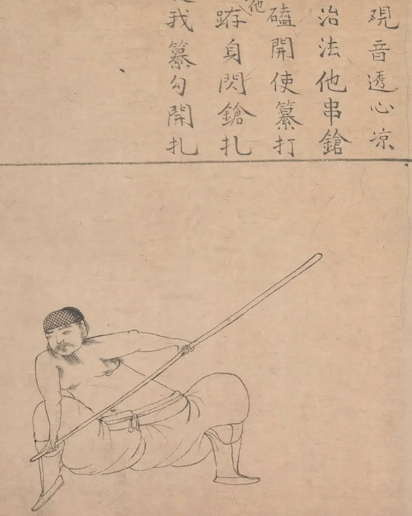 覌音透心凉
治法他串鎗
磕開使纂打
他
身閃鎗扎
我纂勾開扎